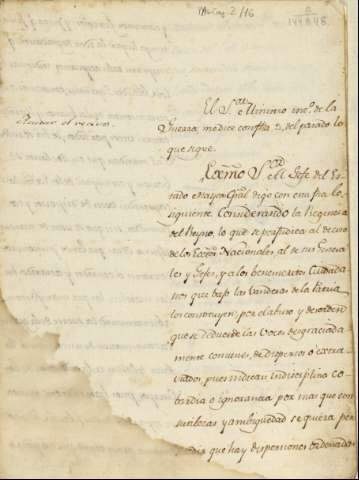 2/16
El S.or Ministro int.o de la
Guerra, me dice con fha 2, del pasado lo
que sigue.
Exmo S.or El Jefe del Es-
tado Mayor Gral dijo con esta fha lo
siguiente. Considerando la Regencia
del Reyno, lo que se perjudica al decoro
de los Exercitos Nacionales, al de sus Genera-
les y Jefes, y a los benemeritos Ciudada-
nos que bajo las vanderas de la Patria
los constituyen, por el abuso y desorden
que se deduce de las voces desgraciada-
mente comunes, de dispersos ó extra-
viados pues indican indisciplina co-
bardia o ignorancia por mas que con
sutileza y ambiguedad se quiera per-
que hay dispersiones ordenadas